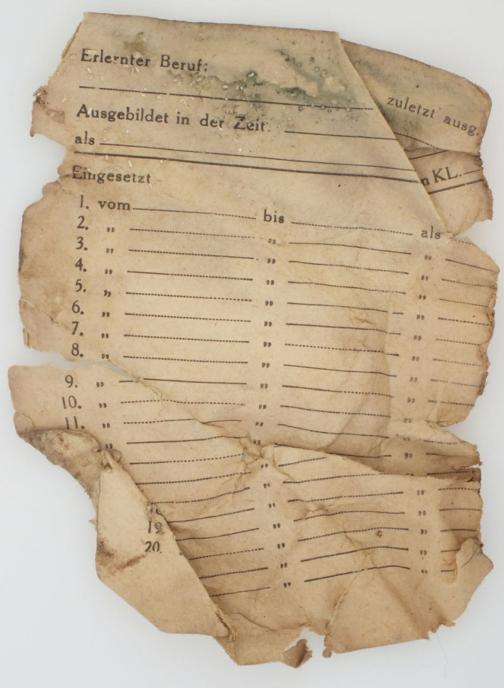 Erlernter Beruf:
zuletzt ausg.
Ausgebildet in der Zeit
als
KL.
Eingesetzt
1. vom bis als
2. „ „ „
3. „ „ „
4. „ „ „
5. „ „ „
6. „ „ „
7. „ „ „
8. „ „ „
9. „ „ „
10. „ „ „
11. „ „ „
19
20.